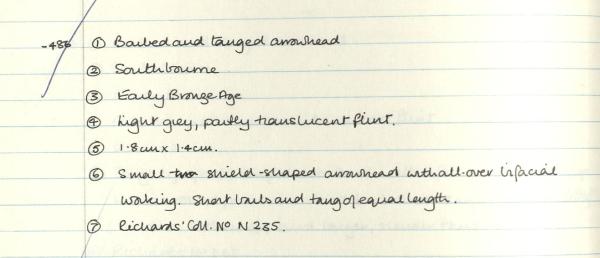 -486 ① Barbed and tanged arrowhead
② Southbourne
③ Early Bronze Age
④ Light grey, partly translucent flint.
⑤ 1.8cm x 1.4cm.
⑥ Small shield-shaped arrowhead with all-over bifacial
working. Short barbs and tang of equal length.
⑦ Richards' Coll. No N 235.